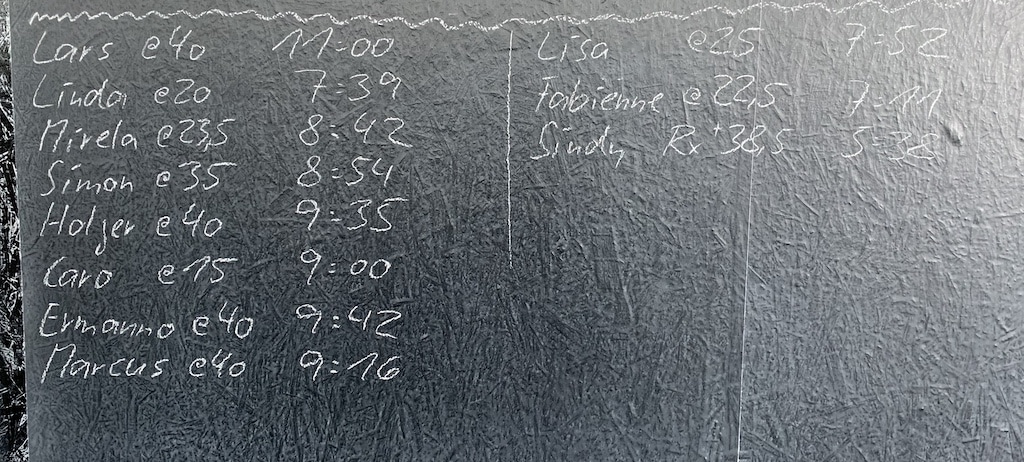 Lars @40 11:00
Linda @20 7:39
Mirela @23,5 8:42
Simon @35 8:54
Holger @40 9:35
Caro @15 9:00
Ermanno @40 9:42
Marcus @40 9:16
Lisa @25 7:52
Fabienne @22,5 7:11
Sindy Rx+38,5 5:38